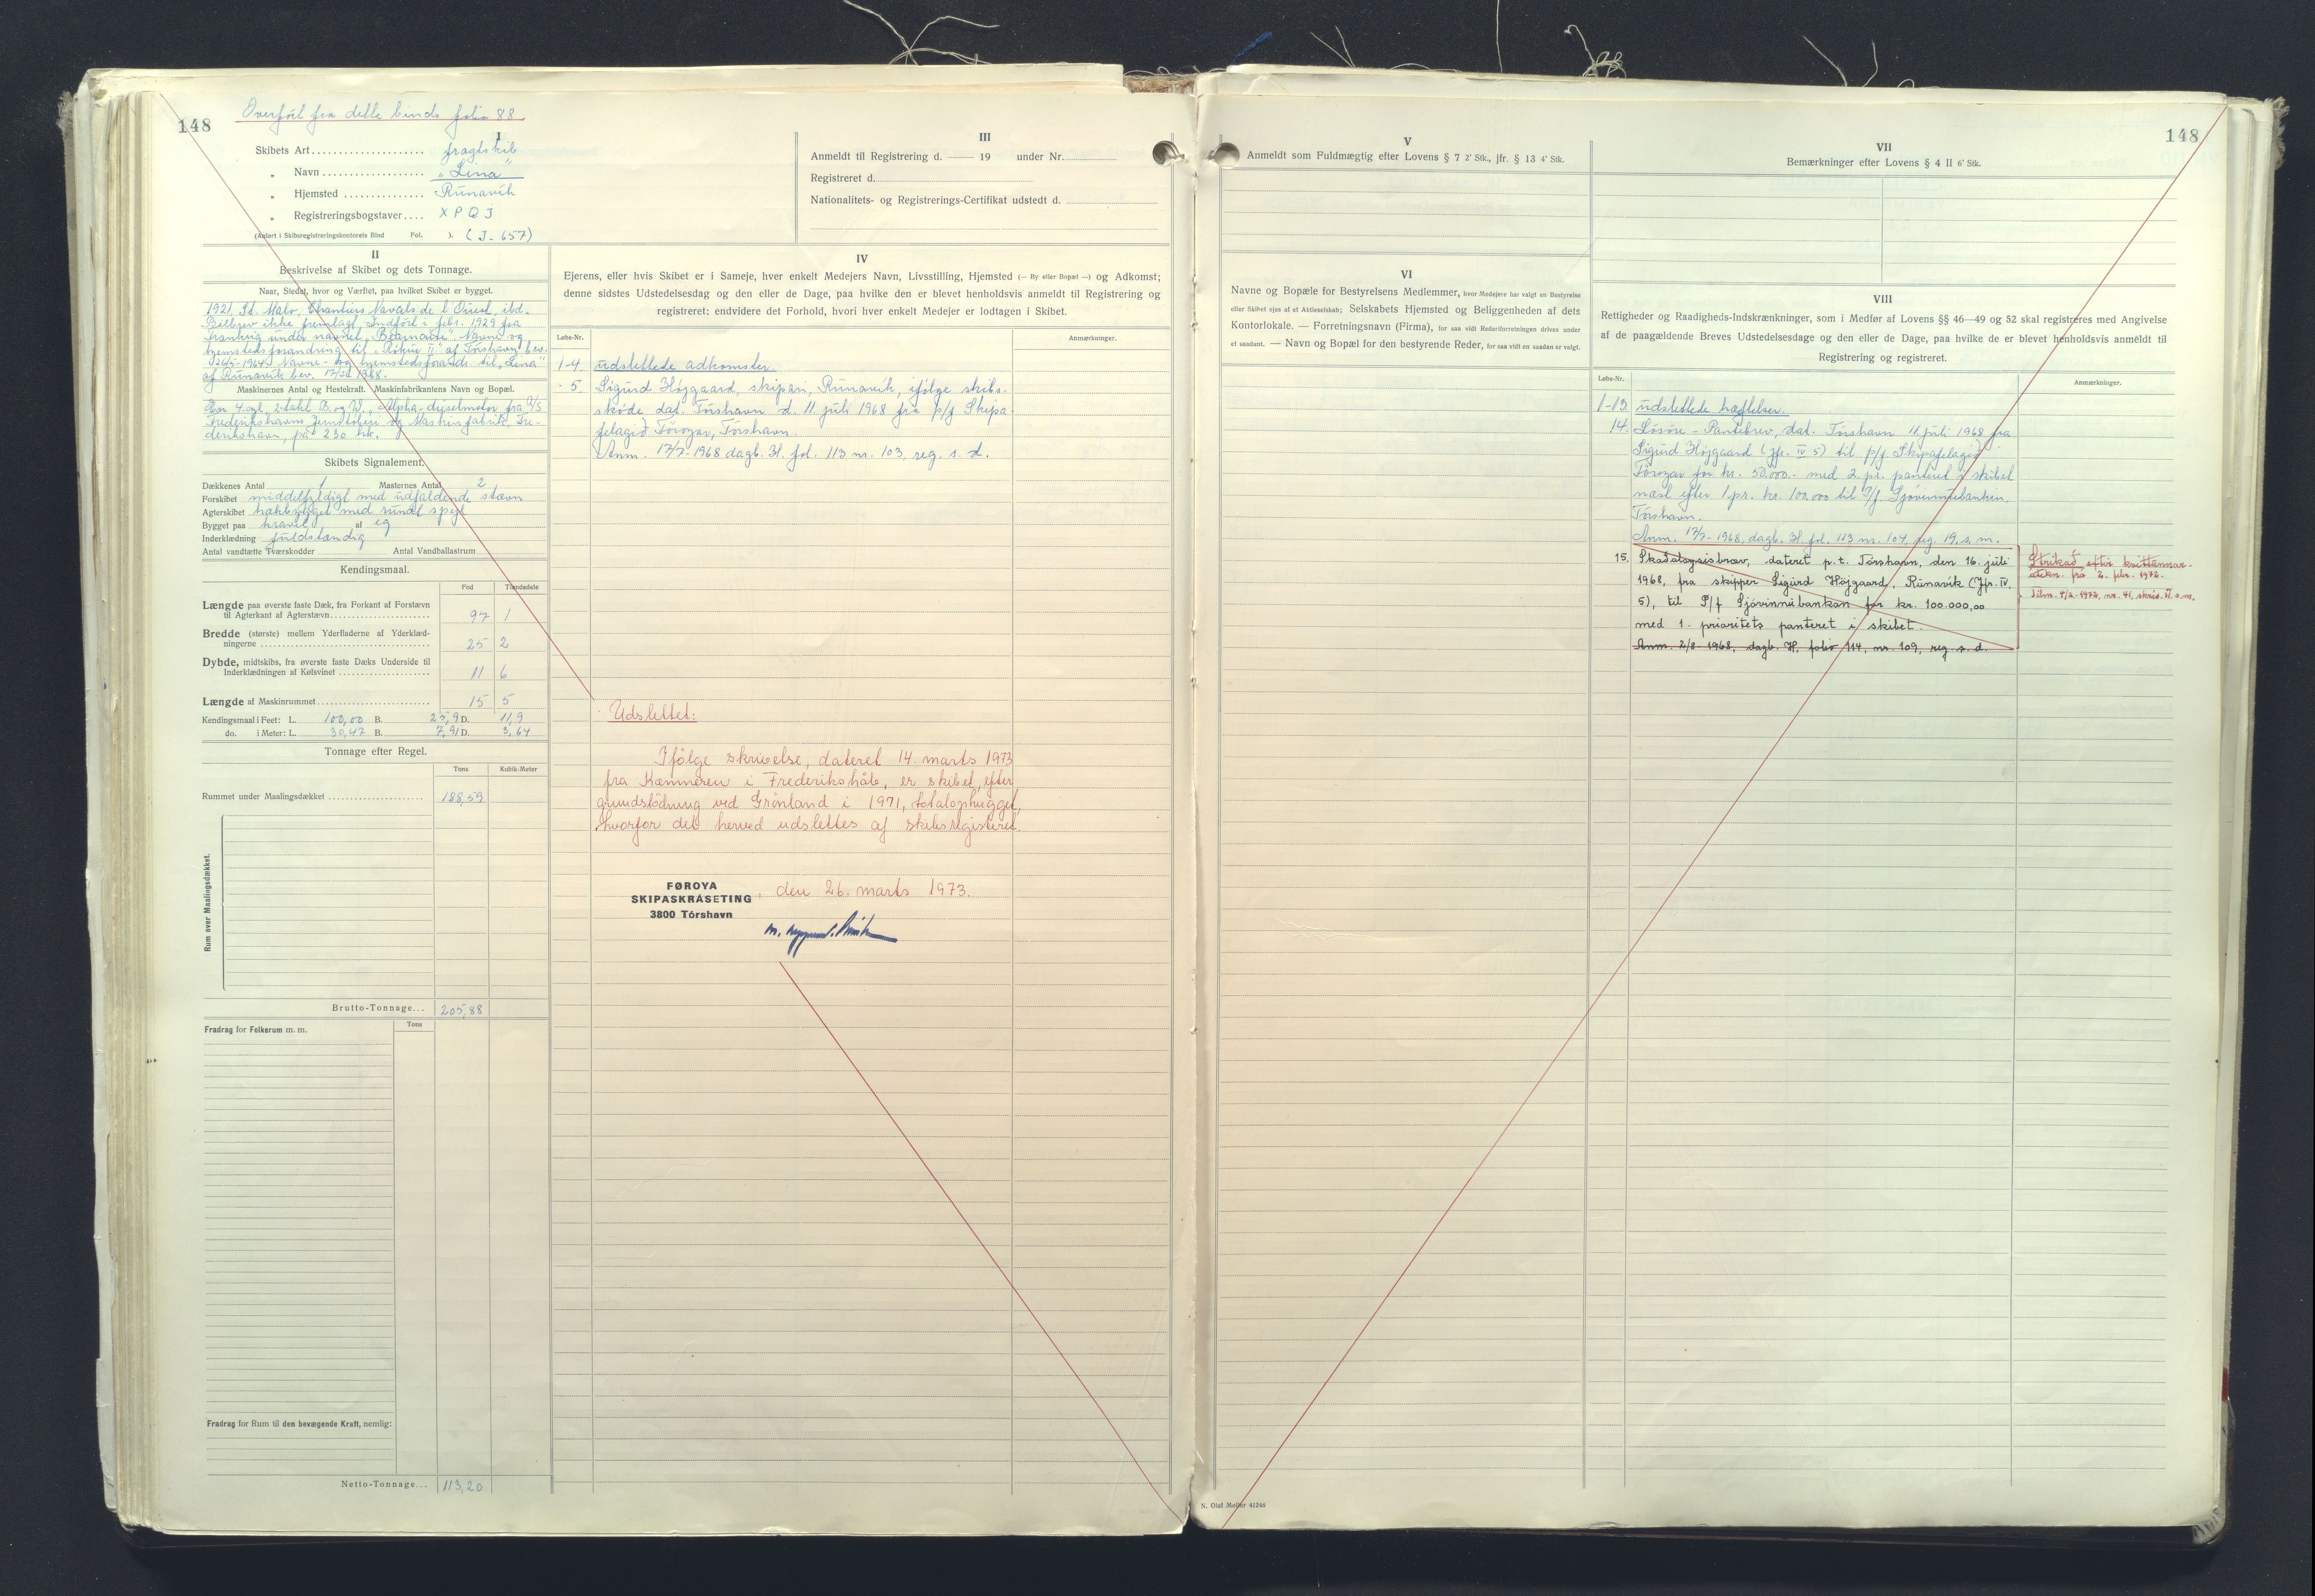 148
Overført fra dette binds folio 88
I
Skibets Art.................... fragtskib
" Navn................... "Lina"
" Hjemsted............... Rúnavík
" Registreringsbogstaver.... X P Q J
(Anført i Skibsregistreringskontorets Bind Fol. ). (J-657)
III
Anmeldt til Registrering d. — 19 under Nr.
Registreret d.
Nationalitets- og Registrerings-Certifikat udstedt d.
II
Beskrivelse af Skibet og dets Tonnage.
Naar, Stedet, hvor og Værftet, paa hvilket Skibet er bygget.
1921, St. Malo, Chantiers Navals de l'Ouest, ibd.
Bilbrev ikke fremlagt. Indført i febr. 1929 fra
Frankrig under navnet "Béarnaise". Navne og
hjemstedsforandring til "Rókur II" af Tórshavn bev.
1964. Navne- og hjemstedsforandr. til "Lina"
af Rúnavík bev. 1968.
Maskinernes Antal og Hestekraft. Maskinfabrikantens Navn og Bopæl.
Een 4 cyl. 2-takt B. og W. "Alpha-dieselmotor fra A/S
Frederikshavns Jernstøberi og Maskinfabrik, Fre-
derikshavn, på 230 hk.
Skibets Signalement.
Dækkenes Antal 1 Masternes Antal 2
Forskibet middelfyldigt med udfaldende stævn
Agterskibet hækbygget med rundt spejl
Bygget paa kravel af eg
Inderklædning fuldstændig
Antal vandtætte Tværskodder Antal Vandballastrum
Kendingsmaal.
Fod Tiendedele
Længde paa øverste faste Dæk, fra Forkant af Forstævn
til Agterkant af Agterstævn 97 1
Bredde (største) mellem Yderfladerne af Yderklæd-
ningerne 25 2
Dybde, midtskibs, fra øverste faste Dæks Underside til
Inderklædningen af Kølsvinet 11 6
Længde af Maskinrummet 15 5
Kendingsmaal i Feet: L. 100,00 B. 25,9 D. 11,9
do. i Meter: L. 30,47 B. 7,91 D. 3,64
Tonnage efter Regel.
Tons Kubik-Meter
Rummet under Maalingsdækket 188,59
Rum over Maalingsdækket.
Brutto-Tonnage... 205,88
Fradrag for Folkerum m. m. Tons
Fradrag for Rum til den bevægende Kraft, nemlig:
Netto-Tonnage... 113,20
IV
Ejerens, eller hvis Skibet er i Sameje, hver enkelt Medejers Navn, Livsstilling, Hjemsted (— By eller Bopæl —) og Adkomst;
denne sidstes Udstedelsesdag og den eller de Dage, paa hvilke den er blevet henholdsvis anmeldt til Registrering og
registreret; endvidere det Forhold, hvori hver enkelt Medejer er lodtagen i Skibet.
Løbe-Nr. Anmærkninger.
1-4 udslettede adkomster.
5. Sigurd Højgaard, skipari, Rúnavík, ifølge skibs-
skøde dat. Tórshavn d. 11 juli 1968 fra p/f Skipa-
felagið Føroyar, Tórshavn.
Anm. 17/7-1968 dagb. H. fol. 113 nr. 103, reg. s. d.
Udslettet:
Ifølge skrivelse, dateret 14. marts 1973
fra Kæmneren i Frederikshåb, er skibet, efter
grundstødning ved Grønland i 1971, totalophugget,
hvorfor det herved udslettes af skibsregisteret.
FØROYA
SKIPASKRÁSETING den 26. marts 1973.
3800 Tórshavn
148
V
Anmeldt som Fuldmægtig efter Lovens § 7 2' Stk., jfr. § 13 4' Stk.
VI
Navne og Bopæle for Bestyrelsens Medlemmer, hvor Medejere har valgt en Bestyrelse
eller Skibet ejes af et Aktieselskab; Selskabets Hjemsted og Beliggenheden af dets
Kontorlokale. — Forretningsnavn (Firma), for saa vidt Rederiforretningen drives under
et saadant. — Navn og Bopæl for den bestyrende Reder, for saa vidt en saadan er valgt.
VII
Bemærkninger efter Lovens § 4 II 6' Stk.
VIII
Rettigheder og Raadigheds-Indskrænkninger, som i Medfør af Lovens §§ 46—49 og 52 skal registreres med Angivelse
af de paagældende Breves Udstedelsesdage og den eller de Dage, paa hvilke de er blevet henholdsvis anmeldt til
Registrering og registreret.
Løbe-Nr. Anmærkninger.
1-13 udslettede hæftelser.
14. Løsøre-Pantebrev, dat. Tórshavn 11 juli 1968 fra
Sigurd Højgaard (jfr. IV 5) til p/f Skipafelagið
Føroyar for kr. 50.000.- med 2. pr. panteret i skibet
næst efter 1 pr. kr. 100.000 til P/f Sjóvinnubankin,
Tórshavn.
Anm. 17/7-1968, dagb. H. fol. 113 nr. 104, reg. 19. s. m.
15. Skadaloysisbræv, dateret p.t. Tórshavn, den 16. juli
1968, fra skipper Sigurd Højgaard, Rúnavík (Jfr. IV.
5), til P/f Sjóvinnubankan for kr. 100.000,00
med 1. prioritets panteret i skibet.
Anm. 2/8-1968, dagb. H, folio 114, nr. 109, reg. s. d.
Strikað eftir kvittannar-
átekn. frá 2. febr. 1972.
Tilm. 4/2-1972, nr. 41, skrás. 11. s. m.
N. Olaf Møller 41246